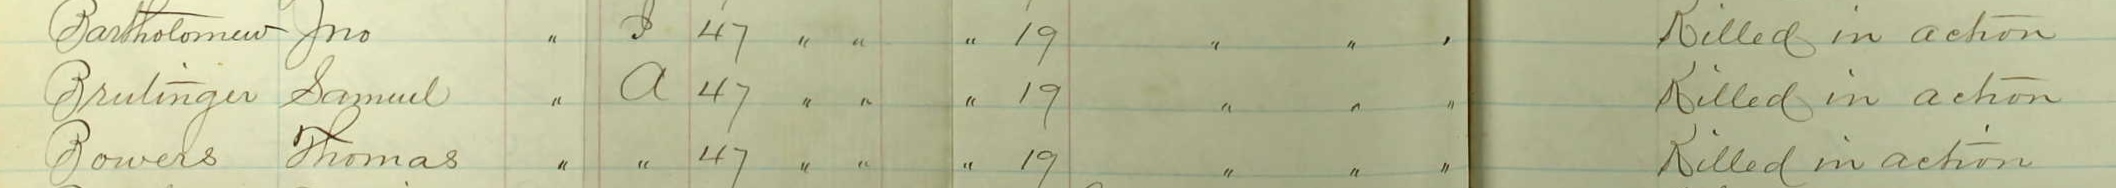 Bartholomew Jno " I 47 " " " 19 " " " Killed in action
Brutinger Samuel " A 47 " " " 19 " " " Killed in action
Bowers Thomas " " 47 " " " 19 " " " Killed in action